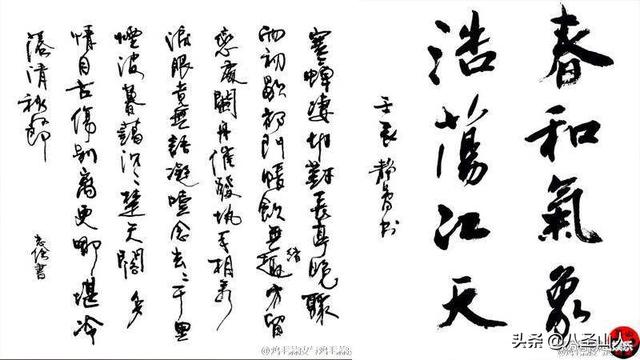 春和氣象
浩蕩江天
壬辰
寒蟬淒切對長亭晚驟
雨初歇都門帳飲無緒方留
戀處蘭舟催發執手相看
淚眼竟無語凝噎念去々千里
煙波暮靄沉々楚天闊多
情自古傷別離更哪堪冷
落清秋節
头条 @八圣山人